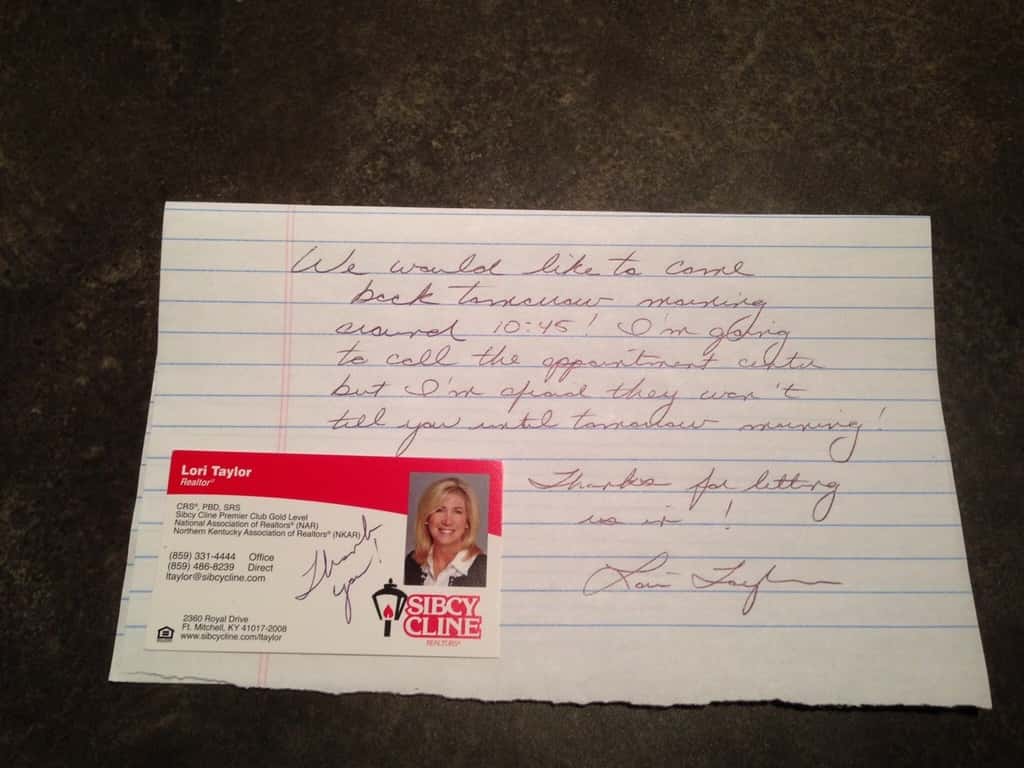 We would like to come
back tomorrow morning
around 10:45! I'm going
to call the appointment center
but I'm afraid they won't
tell you until tomorrow morning!
Thanks for letting
us in!
Lori Taylor
Lori Taylor
Realtor®
CRS®, PBD, SRS
Sibcy Cline Premier Club Gold Level
National Association of Realtors® (NAR)
Northern Kentucky Association of Realtors® (NKAR)
(859) 331-4444 Office
(859) 486-8239 Direct
ltaylor@sibcycline.com
Thank
you!
2360 Royal Drive
Ft. Mitchell, KY 41017-2008
www.sibcycline.com/ltaylor
SIBCY
CLINE
REALTORS®